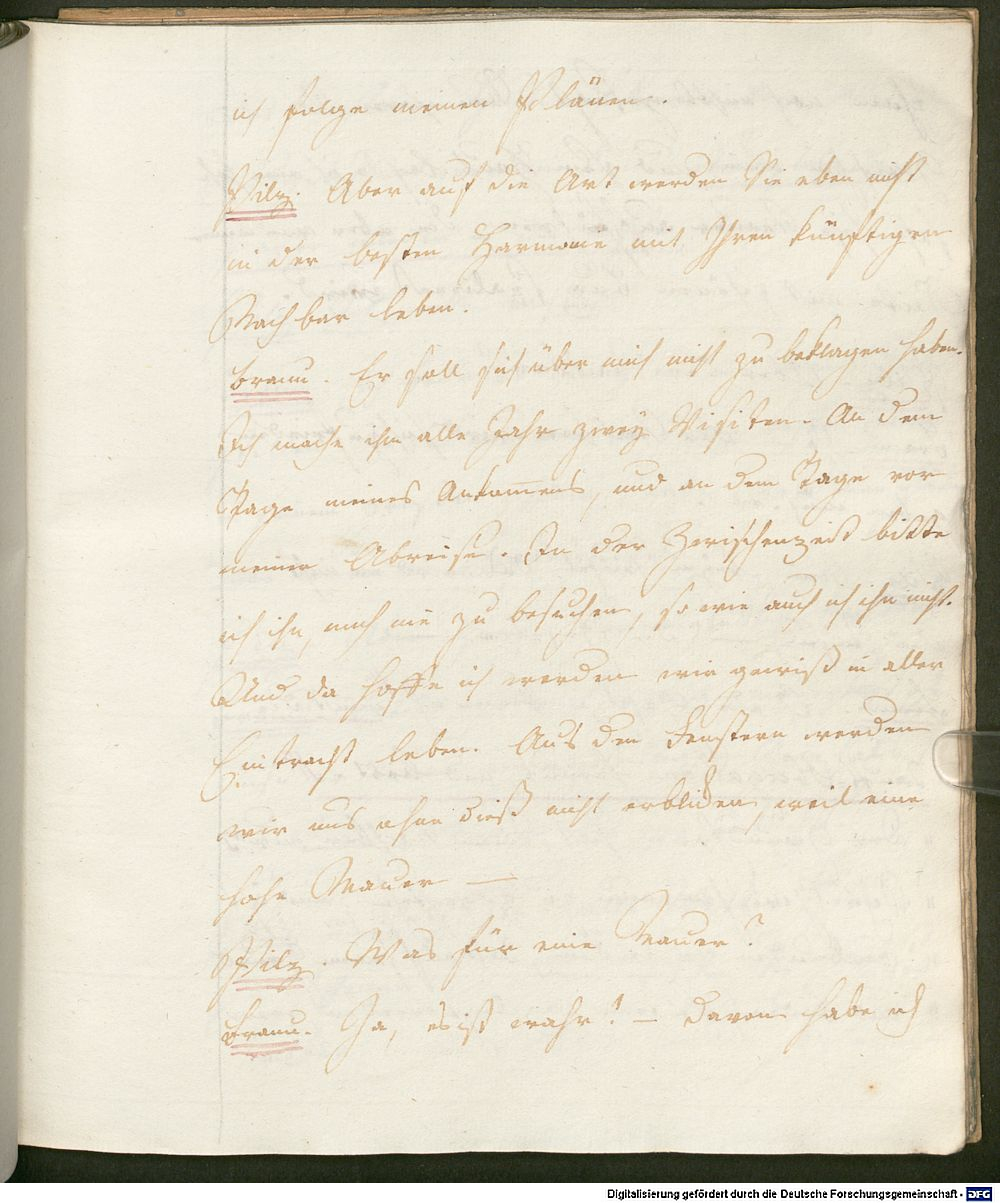 ich folge meinen Plänen.
Pilz. Aber auf die Art werden Sie eben nicht
in der besten Harmonie mit Ihren künftigen
Nachbar leben.
Braun. Er soll sich über mich nicht zu beklagen haben.
Ich mache ihm alle Jahr zwey Visiten. An dem
Tage meines Ankom̄ens, und an dem Tage vor
meiner Abreise. In der Zwischenzeit bitte
ich ihn, mich nie zu besuchen, so wie auch ich ihn nicht.
Und da hoffe ich werden wir gewiß in aller
Eintracht leben. Aus den Fenstern werden
wir uns ohne dieß nicht erblicken, weil eine
hohe Mauer —
Pilz. Was für eine Mauer?
Braun. Ja, es ist wahr! — davon habe ich
Digitalisierung gefördert durch die Deutsche Forschungsgemeinschaft - DFG